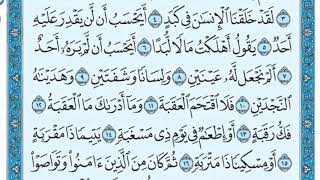 ٣ لَقَدْ خَلَقْنَا ٱلْإِنسَٰنَ فِي كَبَدٍ ٤ أَيَحْسَبُ أَن لَّن يَقْدِرَ عَلَيْهِ
أَحَدٌ ٥ يَقُولُ أَهْلَكْتُ مَالًا لُّبَدًا ٦ أَيَحْسَبُ أَن لَّمْ يَرَهُۥٓ أَحَدٌ
٧ أَلَمْ نَجْعَل لَّهُۥ عَيْنَيْنِ ٨ وَلِسَانًا وَشَفَتَيْنِ ٩ وَهَدَيْنَٰهُ
ٱلنَّجْدَيْنِ ١٠ فَلَا ٱقْتَحَمَ ٱلْعَقَبَةَ ١١ وَمَآ أَدْرَىٰكَ مَا ٱلْعَقَبَةُ ١٢
فَكُّ رَقَبَةٍ ١٣ أَوْ إِطْعَٰمٌ فِي يَوْمٍ ذِي مَسْغَبَةٍ ١٤ يَتِيمًا ذَا مَقْرَبَةٍ
١٥ أَوْ مِسْكِينًا ذَا مَتْرَبَةٍ ١٦ ثُمَّ كَانَ مِنَ ٱلَّذِينَ ءَامَنُوا۟ وَتَوَاصَوْا۟